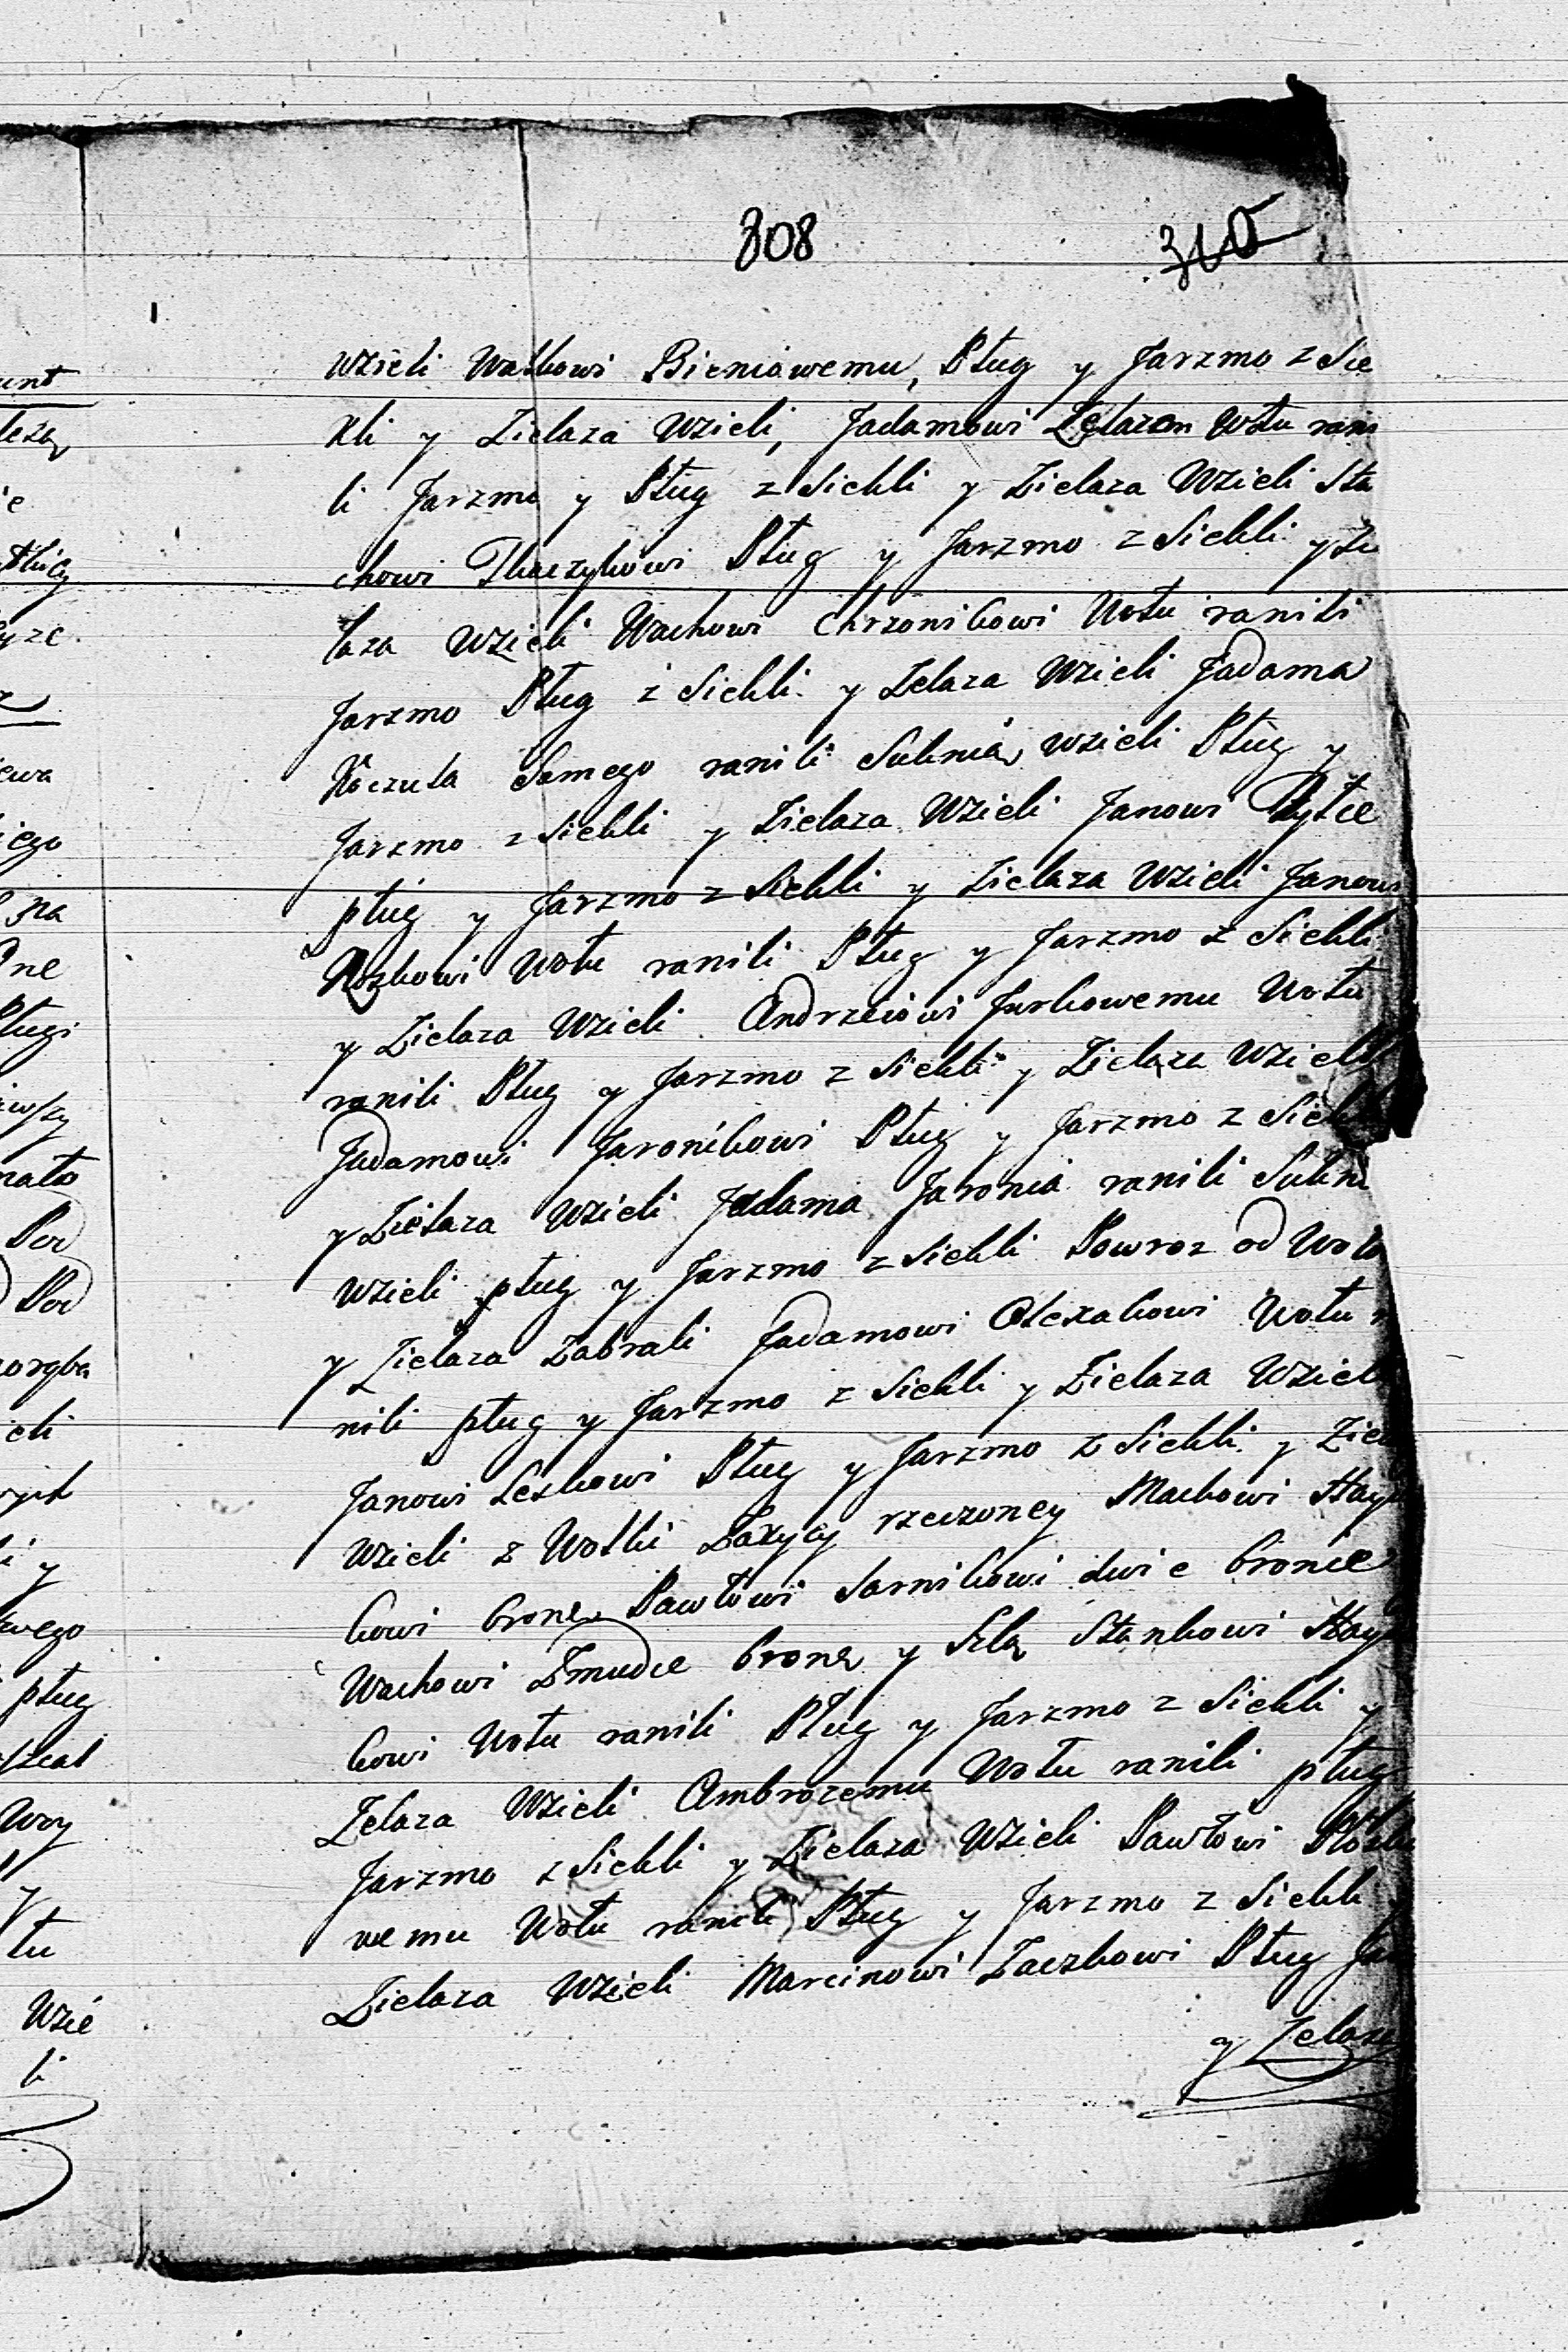 308 310
Wzieli Waśkowi Bieniowemu, Pług y Jarzmo z Sie
kli y Zielaza Wzieli, Jadamowi Żelazem Wołu rani
li Jarzmo y Pług z Siekli y Zielaza Wzieli Sta
chowi Tkaczykowi Pług y Jarzmo z Siekli y Ze
laza Wzieli Wachowi Chrzonikowi Wołu ranili
Jarzmo Pług z Siekli y Zelaza Wzieli Jadama
Koczuta Samego ranili Suknią wzieli Pług y
Jarzmo z Siekli y Zielaza Wzieli Janowi Rytce
pług y Jarzmo z Siekli y Zielaza Wzieli Janowi
Wołu ranili Pług y Jarzmo z Siekli
y Zielaza Wzieli Andrzeiowi Jurkowemu Wołu
ranili Pług y Jarzmo z Siekli y Zielaza Wzieli
Jadamowi Jaronikowi Pług y Jarzmo z Siekli
y Zielaza Wzieli Jadama Jaronia ranili Sukni
Wzieli pług y Jarzmo z Siekli Powroz od Woło
y Zielaza Zabrali Jadamowi Olexakowi Wołu
nili pług y Jarzmo z Siekli y Zielaza Wzieli
Janowi Leskowi Pług y Jarzmo z Siekli y Ziel
Wzieli z Wolki Łaxycy rzeczoney Maćkowi Hay
kowi bronę Pawłowi Sarnikowi dwie bronie
Wachowi Zmudce bronę y Slą Stankowi Hay
kowi Wołu ranili Pług y Jarzmo z Siekli y
Zelaza Wzieli Ambrozemu Wołu ranili pług
Jarzmo z Siekli y Zielaza Wzieli Pawłowi
wemu Wołu ranili Pług y Jarzmo z Siekli
Zielaza Wzieli Marcinowi Zaczkowi Pług
y Zelaza